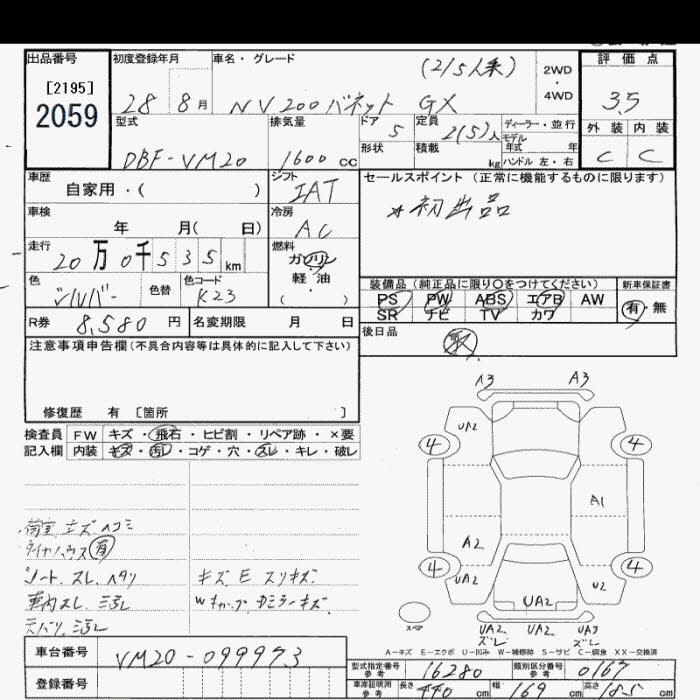 出品番号
[2195]
2059
初度登録年月
28 8月
車名・グレード
(2/5人乗)
NV200バネット GX
2WD
・
4WD
評価点
3.5
外装 内装
C C
型式
DBF-VM20
排気量
1600 cc
ドア 5
形状
定員
2(5)人
積載 kg
ディーラー・並行
モデル年式 年
ハンドル 左・右
車歴
自家用・( )
シフト
IAT
セールスポイント (正常に機能するものに限ります)
*初出品
車検
年 月( 日)
冷房
AC
走行
20万0千535km
燃料
ガソリン
・軽・油
・( )
色
シルバー
色替
色コード
K23
装備品 (純正品に限り〇をつけてください)
PS PW ABS エアB AW
SR ナビ TV カワ
新車保証書
有・無
R券 8,580 円
名変期限 月 日
後日品
注意事項申告欄(不具合内容等は具体的に記入して下さい)
修復歴 有 [箇所 ]
検査員
記入欄
FW キズ・飛石・ヒビ割・リペア跡・×要
内装 キズ・汚レ・コゲ・穴・スレ・キレ・破レ
荷室 キズ ヘコミ
タイヤハウス 有
シート スレ、ヘタリ
車内スレ、汚レ
天バリ 汚レ
キズ E スリキズ
A3 A3
UA2
4 4
A1
A2
4 4
UA2 U2
UA2
スペア
UA2 UA2 UA3
ズレ ズレ
A-キズ E-エクボ U-凹み W-補修跡 S-サビ C-腐食 XX-交換済
車台番号
VM20-099973
登録番号
型式指定番号
参考
16280
類別区分番号
参考
0167
車庫証明用
参考
長さ 440 cm
幅 169 cm
高さ 185 cm